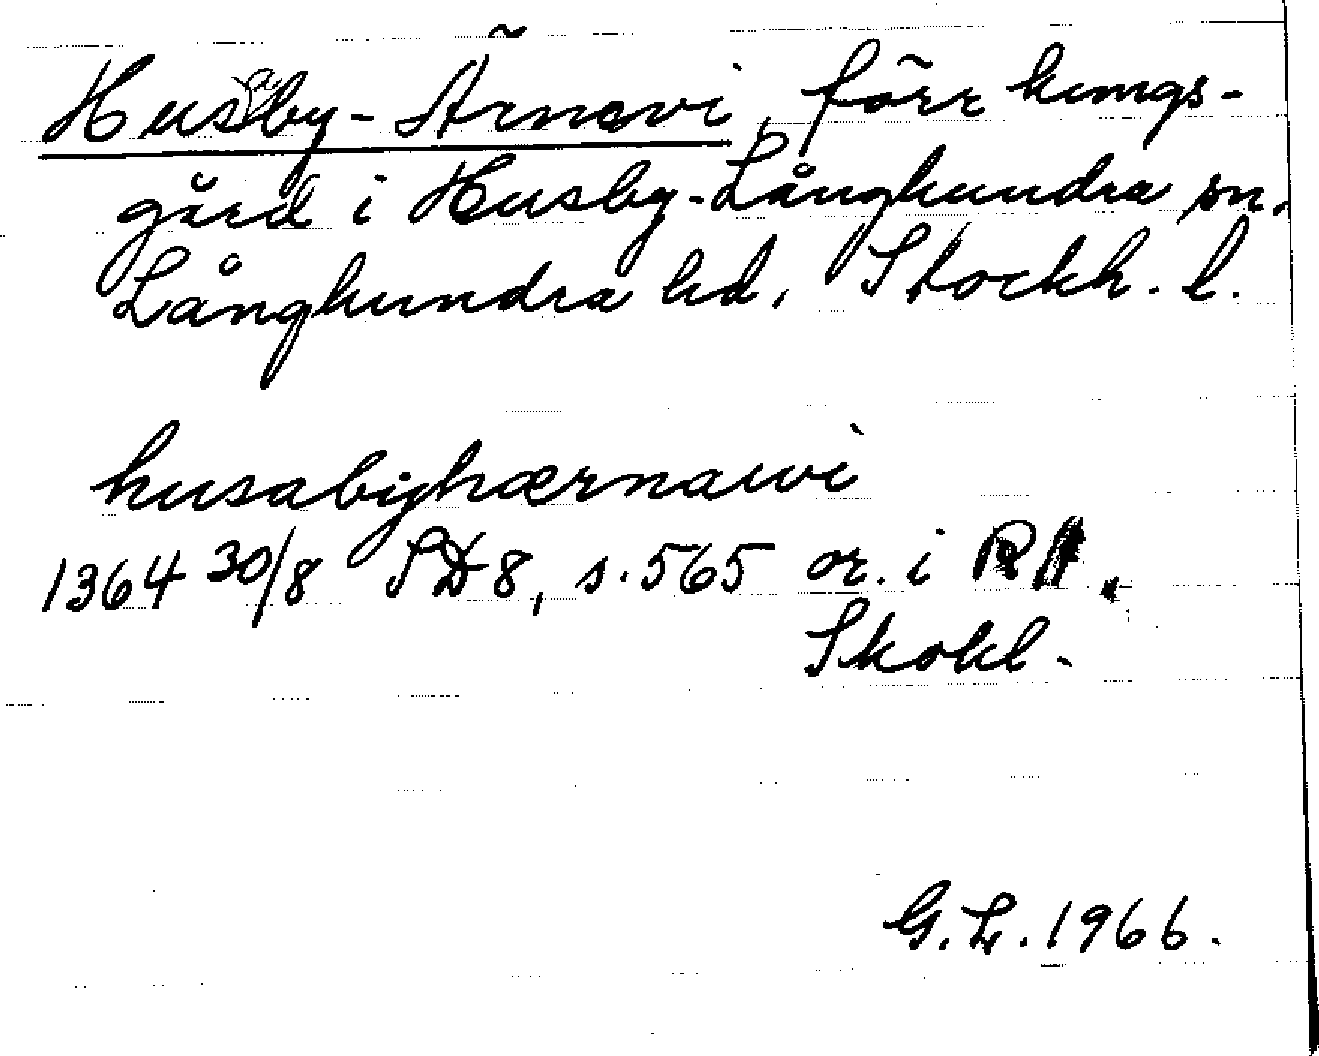 Husby-Ärnavi, förr kungs-
gård i Husby-Långhundra sn.
Långhundra hd, Stockh. l.
husabyhærnawi
1364 30/8 SD 8, s. 565 or. i RA.
Skokl.
G.L. 1966.